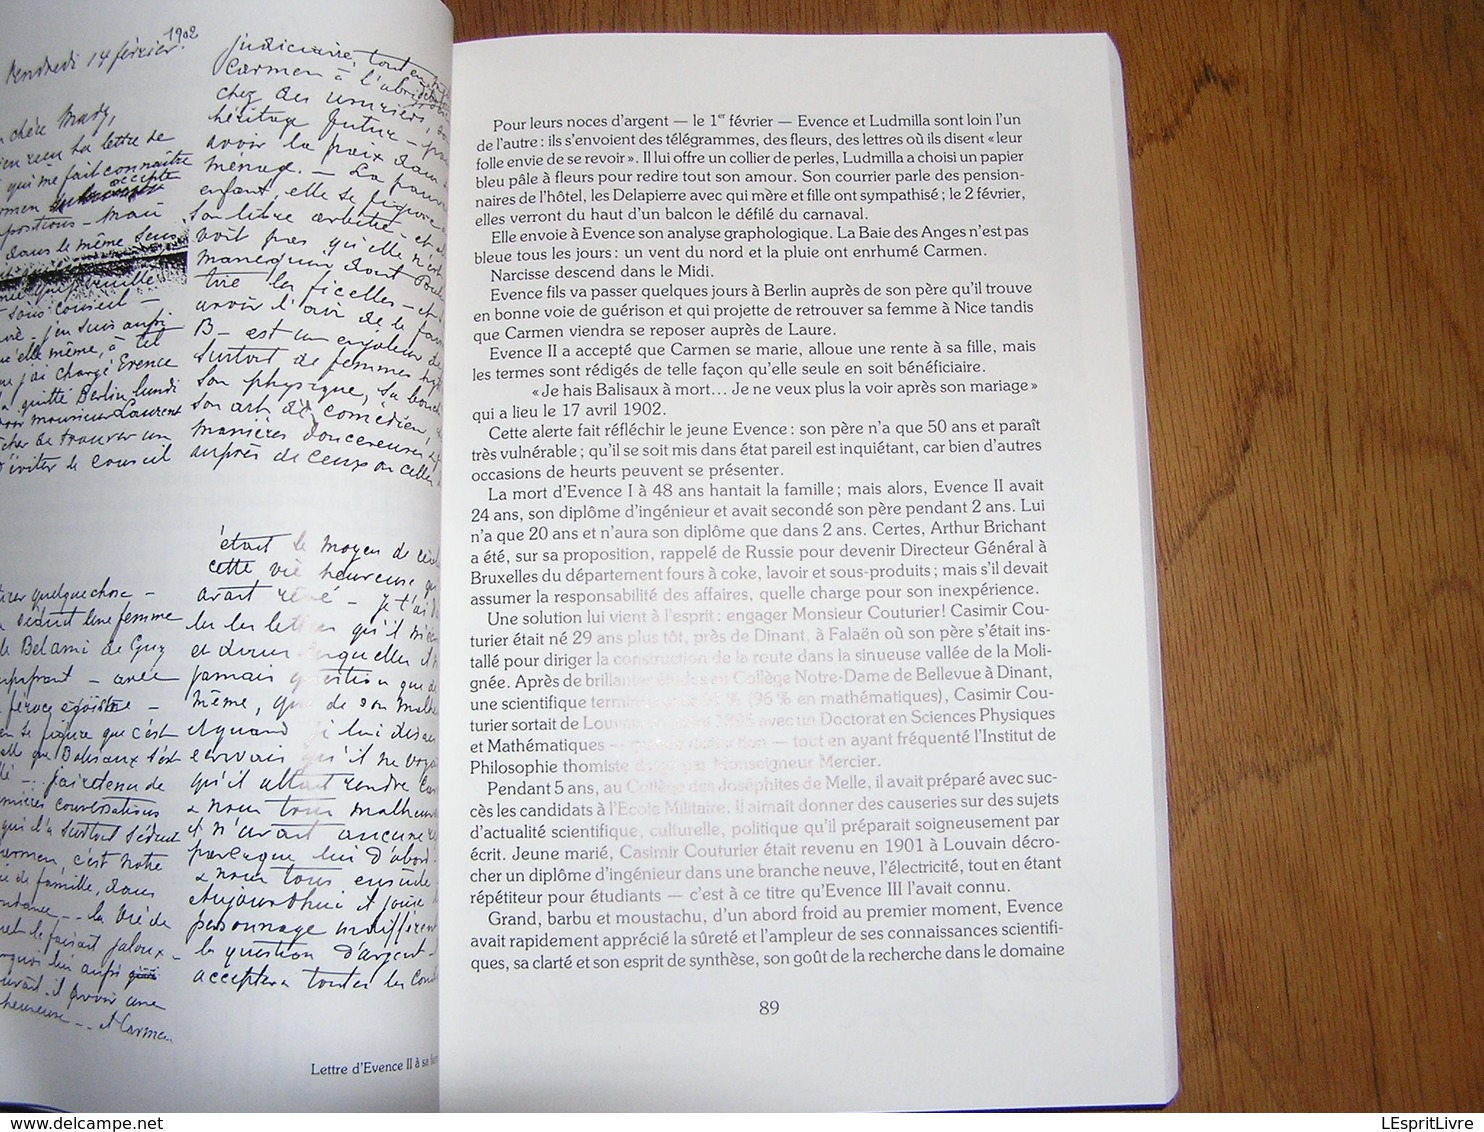 Vendredi 14 février 1902
chère Mady,
la lettre de
qui me fait connaître
accepte
positions - mais
dans le même sens
sans conseil -
j'en suis aussi
qu'elle même, à tel
j'ai chargé Evence
quitté Berlin lundi
monsieur Laurent
de trouver un
éviter le conseil
judiciaire, tout en
Carmen à l'abri
chez des usuriers,
héritage futur -
avoir la paix dans
ménage. - La pauvre
enfant, elle se figure
son libre arbitre - et
voit pas qu'elle n'est
mannequin dont
tire les ficelles - et
avoir l'air de le
B- est un enjoleur de
surtout de femmes
son physique, sa bouche
son art de comédien,
manières doucereuses
auprès de ceux ou celles
quelque chose -
séduit une femme
Bel ami de Guy
- avec
féroce égoïsme -
se figure que c'est
que Balisaux s'est
conversations
qui l'a surtout séduit
Carmen, c'est notre
de famille, dans
la vie de
le faisait jaloux -
lui aussi
avoir une
heureuse -- et Carmen
était le moyen de
cette vie heureuse
avait rêvé - je t'ai
lu les lettres qu'il m'
et dans lesquelles il
jamais question que de
même, que de son
et quand je lui
écrivais qu'il ne
qu'il allait rendre
& nous tous malheureux
il n'avait aucune
parce que lui d'abord
& nous tous ensuite
Aujourd'hui il joue
personnage indifférent
la question d'argent -
acceptera toutes les
Lettre d'Evence II à sa
Pour leurs noces d'argent — le 1er février — Evence et Ludmilla sont loin l'un
de l'autre : ils s'envoient des télégrammes, des fleurs, des lettres où ils disent « leur
folle envie de se revoir ». Il lui offre un collier de perles, Ludmilla a choisi un papier
bleu pâle à fleurs pour redire tout son amour. Son courrier parle des pension-
naires de l'hôtel, les Delapierre avec qui mère et fille ont sympathisé ; le 2 février,
elles verront du haut d'un balcon le défilé du carnaval.
Elle envoie à Evence son analyse graphologique. La Baie des Anges n'est pas
bleue tous les jours : un vent du nord et la pluie ont enrhumé Carmen.
Narcisse descend dans le Midi.
Evence fils va passer quelques jours à Berlin auprès de son père qu'il trouve
en bonne voie de guérison et qui projette de retrouver sa femme à Nice tandis
que Carmen viendra se reposer auprès de Laure.
Evence II a accepté que Carmen se marie, alloue une rente à sa fille, mais
les termes sont rédigés de telle façon qu'elle seule en soit bénéficiaire.
« Je hais Balisaux à mort... Je ne veux plus la voir après son mariage »
qui a lieu le 17 avril 1902.
Cette alerte fait réfléchir le jeune Evence : son père n'a que 50 ans et paraît
très vulnérable ; qu'il se soit mis dans état pareil est inquiétant, car bien d'autres
occasions de heurts peuvent se présenter.
La mort d'Evence I à 48 ans hantait la famille ; mais alors, Evence II avait
24 ans, son diplôme d'ingénieur et avait secondé son père pendant 2 ans. Lui
n'a que 20 ans et n'aura son diplôme que dans 2 ans. Certes, Arthur Brichant
a été, sur sa proposition, rappelé de Russie pour devenir Directeur Général à
Bruxelles du département fours à coke, lavoir et sous-produits ; mais s'il devait
assumer la responsabilité des affaires, quelle charge pour son inexpérience.
Une solution lui vient à l'esprit : engager Monsieur Couturier ! Casimir Cou-
turier était né 29 ans plus tôt, près de Dinant, à Falaën où son père s'était ins-
tallé pour diriger la construction de la route dans la sinueuse vallée de la Moli-
gnée. Après de brillantes études au Collège Notre-Dame de Bellevue à Dinant,
une scientifique terminée (96 % en mathématiques), Casimir Cou-
turier sortait de Louvain en 1896 avec un Doctorat en Sciences Physiques
et Mathématiques — — tout en ayant fréquenté l'Institut de
Philosophie thomiste dirigé par Monseigneur Mercier.
Pendant 5 ans, au Collège des Joséphites de Melle, il avait préparé avec suc-
cès les candidats à l'Ecole Militaire. Il aimait donner des causeries sur des sujets
d'actualité scientifique, culturelle, politique qu'il préparait soigneusement par
écrit. Jeune marié, Casimir Couturier était revenu en 1901 à Louvain décro-
cher un diplôme d'ingénieur dans une branche neuve, l'électricité, tout en étant
répétiteur pour étudiants — c'est à ce titre qu'Evence III l'avait connu.
Grand, barbu et moustachu, d'un abord froid au premier moment, Evence
avait rapidement apprécié la sûreté et l'ampleur de ses connaissances scientifi-
ques, sa clarté et son esprit de synthèse, son goût de la recherche dans le domaine
89
LEspritLivre